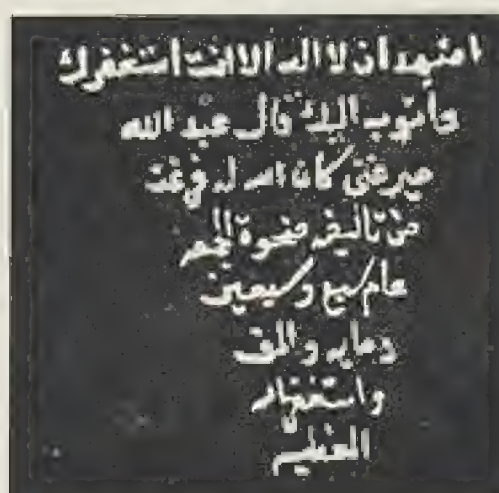 اشهد ان لا اله الا انت استغفرك
وأتوب اليك قال عبد الله
ميرغني كان الله له فرغت
من تأليفه ضحوة الجمعه
عام سبع وسبعين
ومايه والف
واستغفر
العظيم